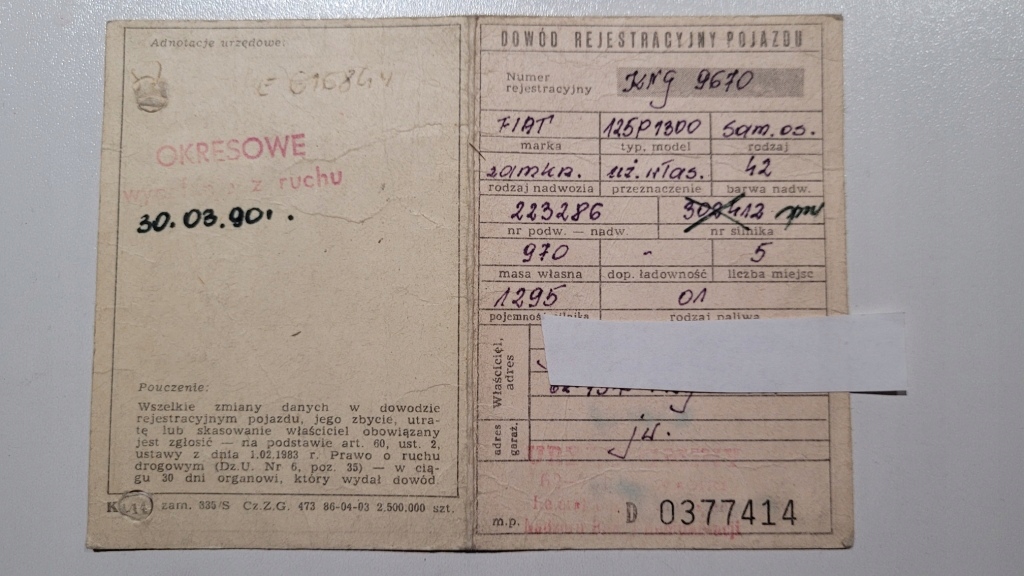 Adnotacje urzędowe:
E 616844
OKRESOWE
z ruchu
30.03.90r.
Pouczenie:
Wszelkie zmiany danych w dowodzie
rejestracyjnym pojazdu, jego zbycie, utra-
tę lub skasowanie właściciel obowiązany
jest zgłosić — na podstawie art. 60, ust. 2,
ustawy z dnia 1.02.1983 r. Prawo o ruchu
drogowym (Dz.U. Nr 6, poz. 35) — w cią-
gu 30 dni organowi, który wydał dowód
zam. 335/S Cz.Z.G. 473 86-04-03 2.500.000 szt.
DOWÓD REJESTRACYJNY POJAZDU
Numer
rejestracyjny
KNG 9670
FIAT 125P1300 sam. os.
marka typ, model rodzaj
zamkn. uż. włas. 42
rodzaj nadwozia przeznaczenie barwa nadw.
223286 302412
nr podw. — nadw. nr silnika
970 - 5
masa własna dop. ładowność liczba miejsc
1295 01
pojemność silnika rodzaj paliwa
Właściciel,
adres
adres
garaż.
jw.
m.p.
D 0377414